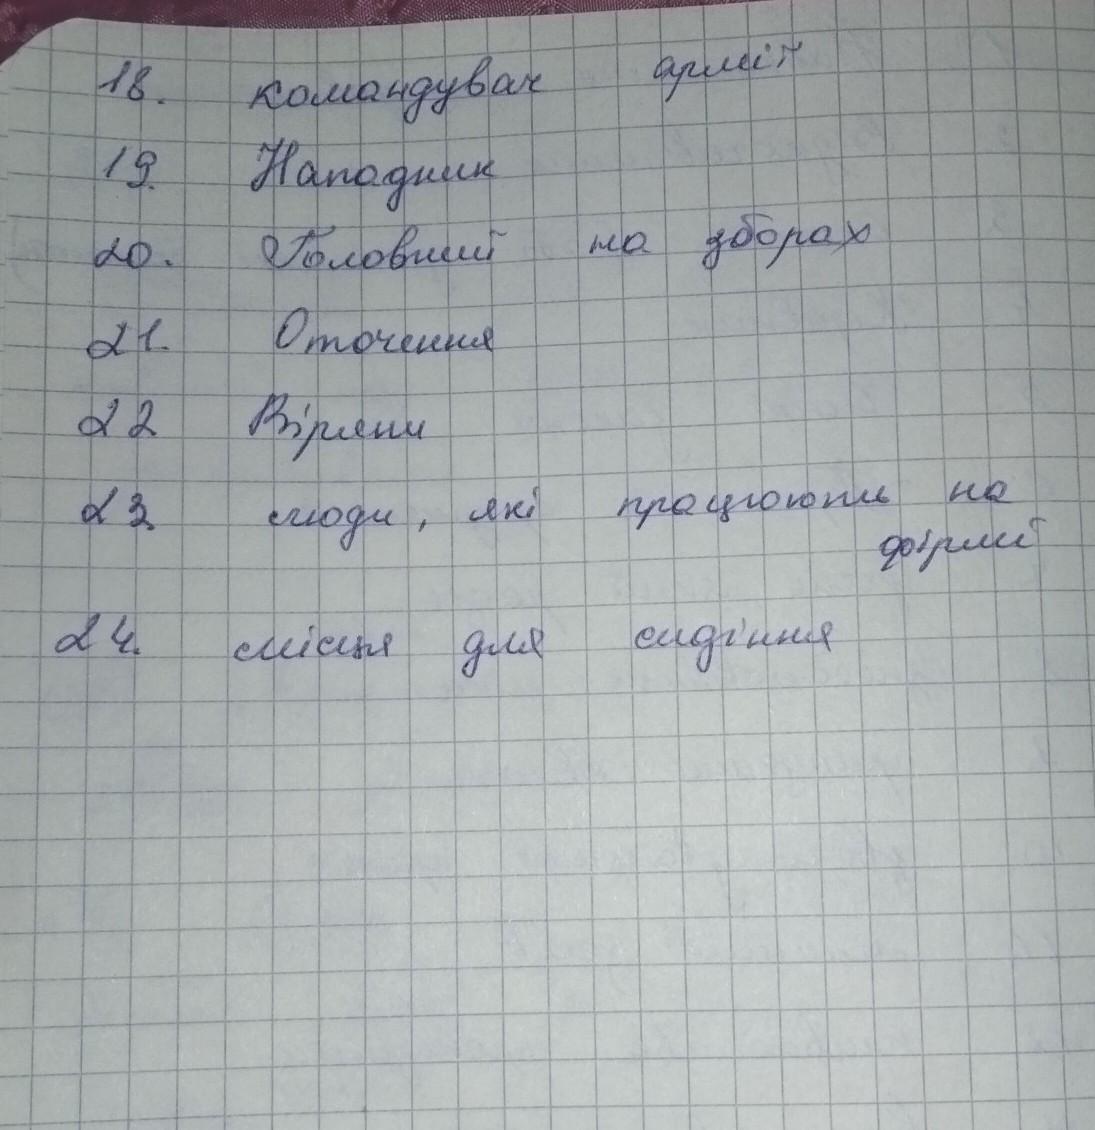 18. командувач армії
19. Нападник
20. Головний на зборах
21. Оточення
22 Віряни
23 люди, які працюють на
фірмі
24. місця для сидіння